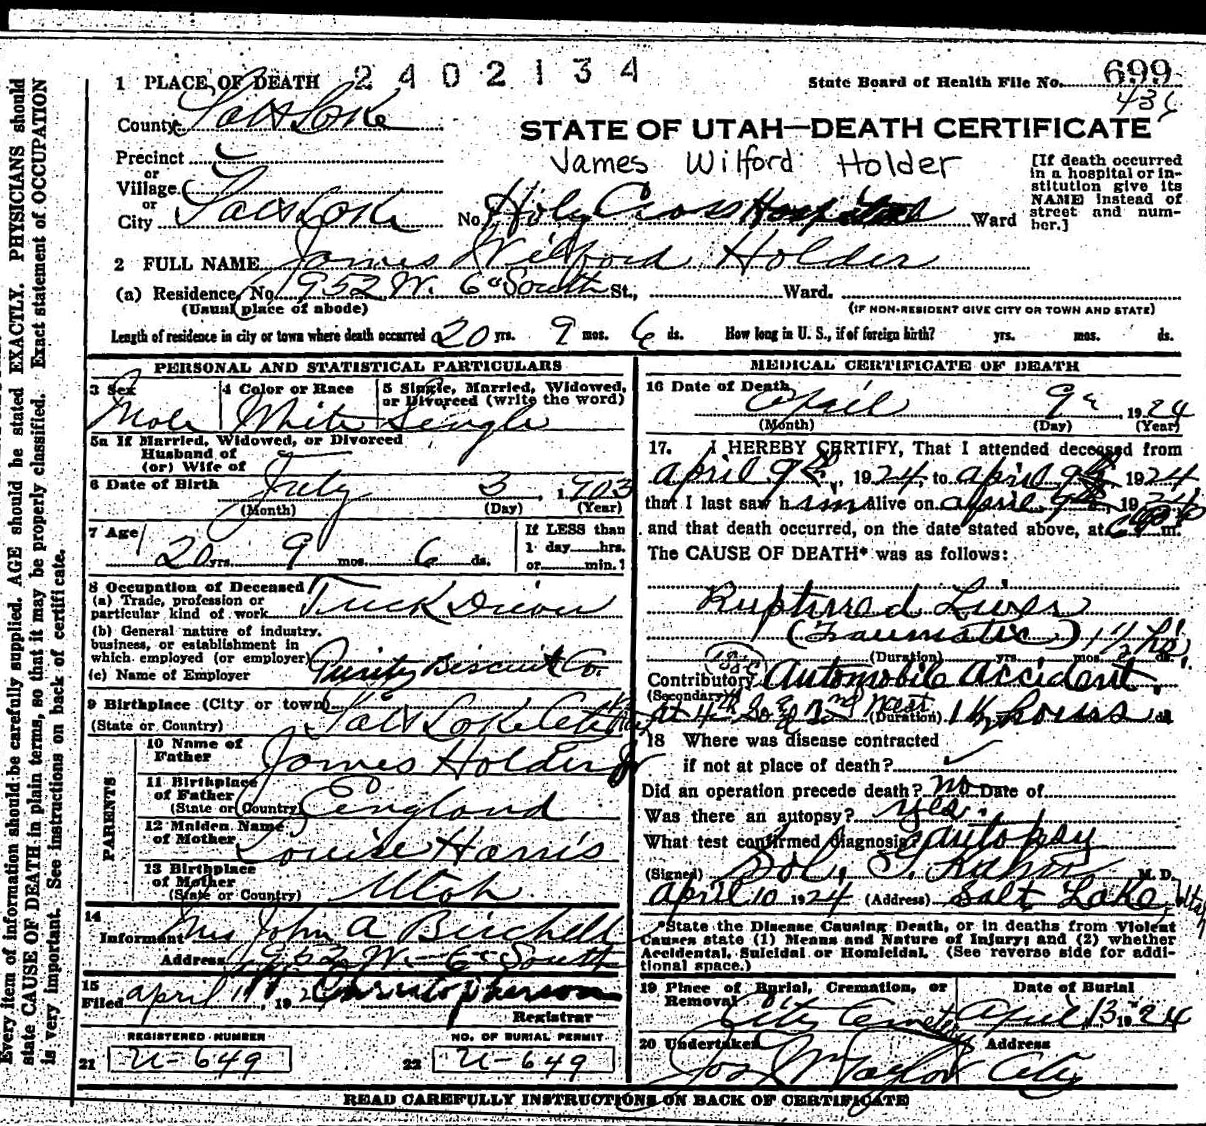 1 PLACE OF DEATH 2402134 State Board of Health File No. 699
436
County Salt Lake
STATE OF UTAH—DEATH CERTIFICATE
Precinct
or
Village
or
City Salt Lake No. Holy Cross Hospital Ward
James Wilford Holder
[If death occurred
in a hospital or in-
stitution give its
NAME instead of
street and num-
ber.]
2 FULL NAME James Wilford Holder
(a) Residence, No. 1952 W. 6" South St., Ward.
(Usual place of abode) (IF NON-RESIDENT GIVE CITY OR TOWN AND STATE)
Length of residence in city or town where death occurred 20 yrs. 9 mos. 6 ds. How long in U. S., if of foreign birth? yrs. mos. ds.
PERSONAL AND STATISTICAL PARTICULARS
3 Sex 4 Color or Race 5 Single, Married, Widowed,
or Divorced (write the word)
Male White Single
5a If Married, Widowed, or Divorced
Husband of
(or) Wife of
6 Date of Birth July 3, 1903
(Month) (Day) (Year)
7 Age 20 yrs. 9 mos. 6 ds.
If LESS than
1 day hrs.
or min.?
8 Occupation of Deceased
(a) Trade, profession or
particular kind of work Truck Driver
(b) General nature of industry,
business, or establishment in
which employed (or employer) Purity Biscuit Co.
(c) Name of Employer
9 Birthplace (City or town) Salt Lake City
(State or Country)
PARENTS
10 Name of
Father James Holder Jr
11 Birthplace
of Father
(State or Country) England
12 Maiden Name
of Mother Louise Harris
13 Birthplace
of Mother
(State or Country) Utah
14
Informant Mrs John A Birchell
Address 1952 W- 6" South
15
Filed April 192 Christopherson
Registrar
REGISTERED NUMBER NO. OF BURIAL PERMIT
21 U-649 22 U-649
MEDICAL CERTIFICATE OF DEATH
16 Date of Death
April 9" 1924
(Month) (Day) (Year)
17. I HEREBY CERTIFY, That I attended deceased from
April 9th, 1924, to April 9th, 1924
that I last saw him alive on April 9th, 1924
and that death occurred, on the date stated above, at m.
The CAUSE OF DEATH* was as follows:
Ruptured Liver
(Traumatic) 1 1/2 hrs.
(Duration) yrs. mos. ds.
188c
Contributory Automobile Accident.
(Secondary)
At 4th So & 2nd West (Duration) 1 1/2 hours ds.
18 Where was disease contracted
if not at place of death?
Did an operation precede death? no Date of
Was there an autopsy? yes.
What test confirmed diagnosis? autopsy
(Signed) Sol. G. Kahn M. D.
April 10 1924 (Address) Salt Lake, Utah
*State the Disease Causing Death, or in deaths from Violent
Causes state (1) Means and Nature of Injury; and (2) whether
Accidental, Suicidal or Homicidal. (See reverse side for addi-
tional space.)
19 Place of Burial, Cremation, or Date of Burial
Removal City Cemetery April 13 1924
20 Undertaker Address
Jos Wm Taylor City
READ CAREFULLY INSTRUCTIONS ON BACK OF CERTIFICATE
Every item of information should be carefully supplied. AGE should be stated EXACTLY. PHYSICIANS should
state CAUSE OF DEATH in plain terms, so that it may be properly classified. Exact statement of OCCUPATION
is very important. See instructions on back of certificate.